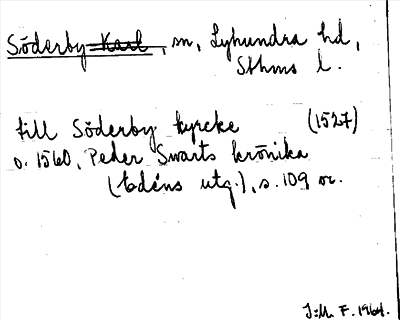 Söderby-Karl, sn, Lyhundra hd,
Sthms l.
till Söderby kyrcke (1527)
o. 1560, Peder Swarts krönika
(Edéns utg.), s. 109 or.
J:M. F. 1964.